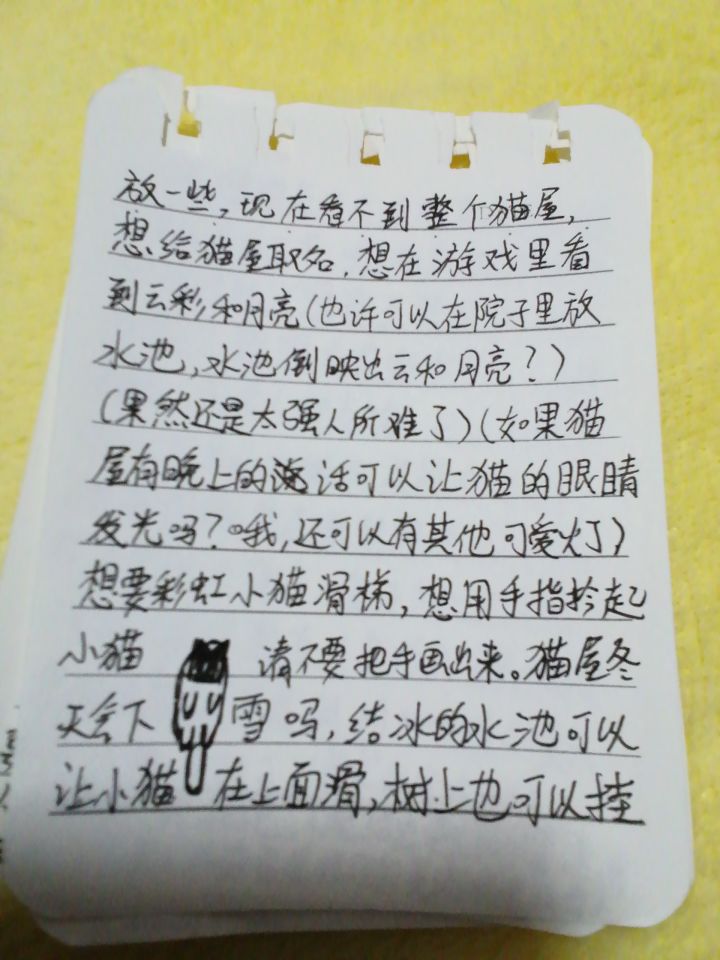 放一些,现在看不到整个猫屋,
想给猫屋取名,想在游戏里看
到云彩和月亮(也许可以在院子里放
水池,水池倒映出云和月亮?)
(果然还是太强人所难了)(如果猫
屋有晚上的话可以让猫的眼睛
发光吗?哦,还可以有其他可爱灯)
想要彩虹小猫滑梯,想用手指拎起
小猫 请不要把手画出来。猫屋冬
天会下 雪吗,结冰的水池可以
让小猫 在上面滑,树上也可以挂